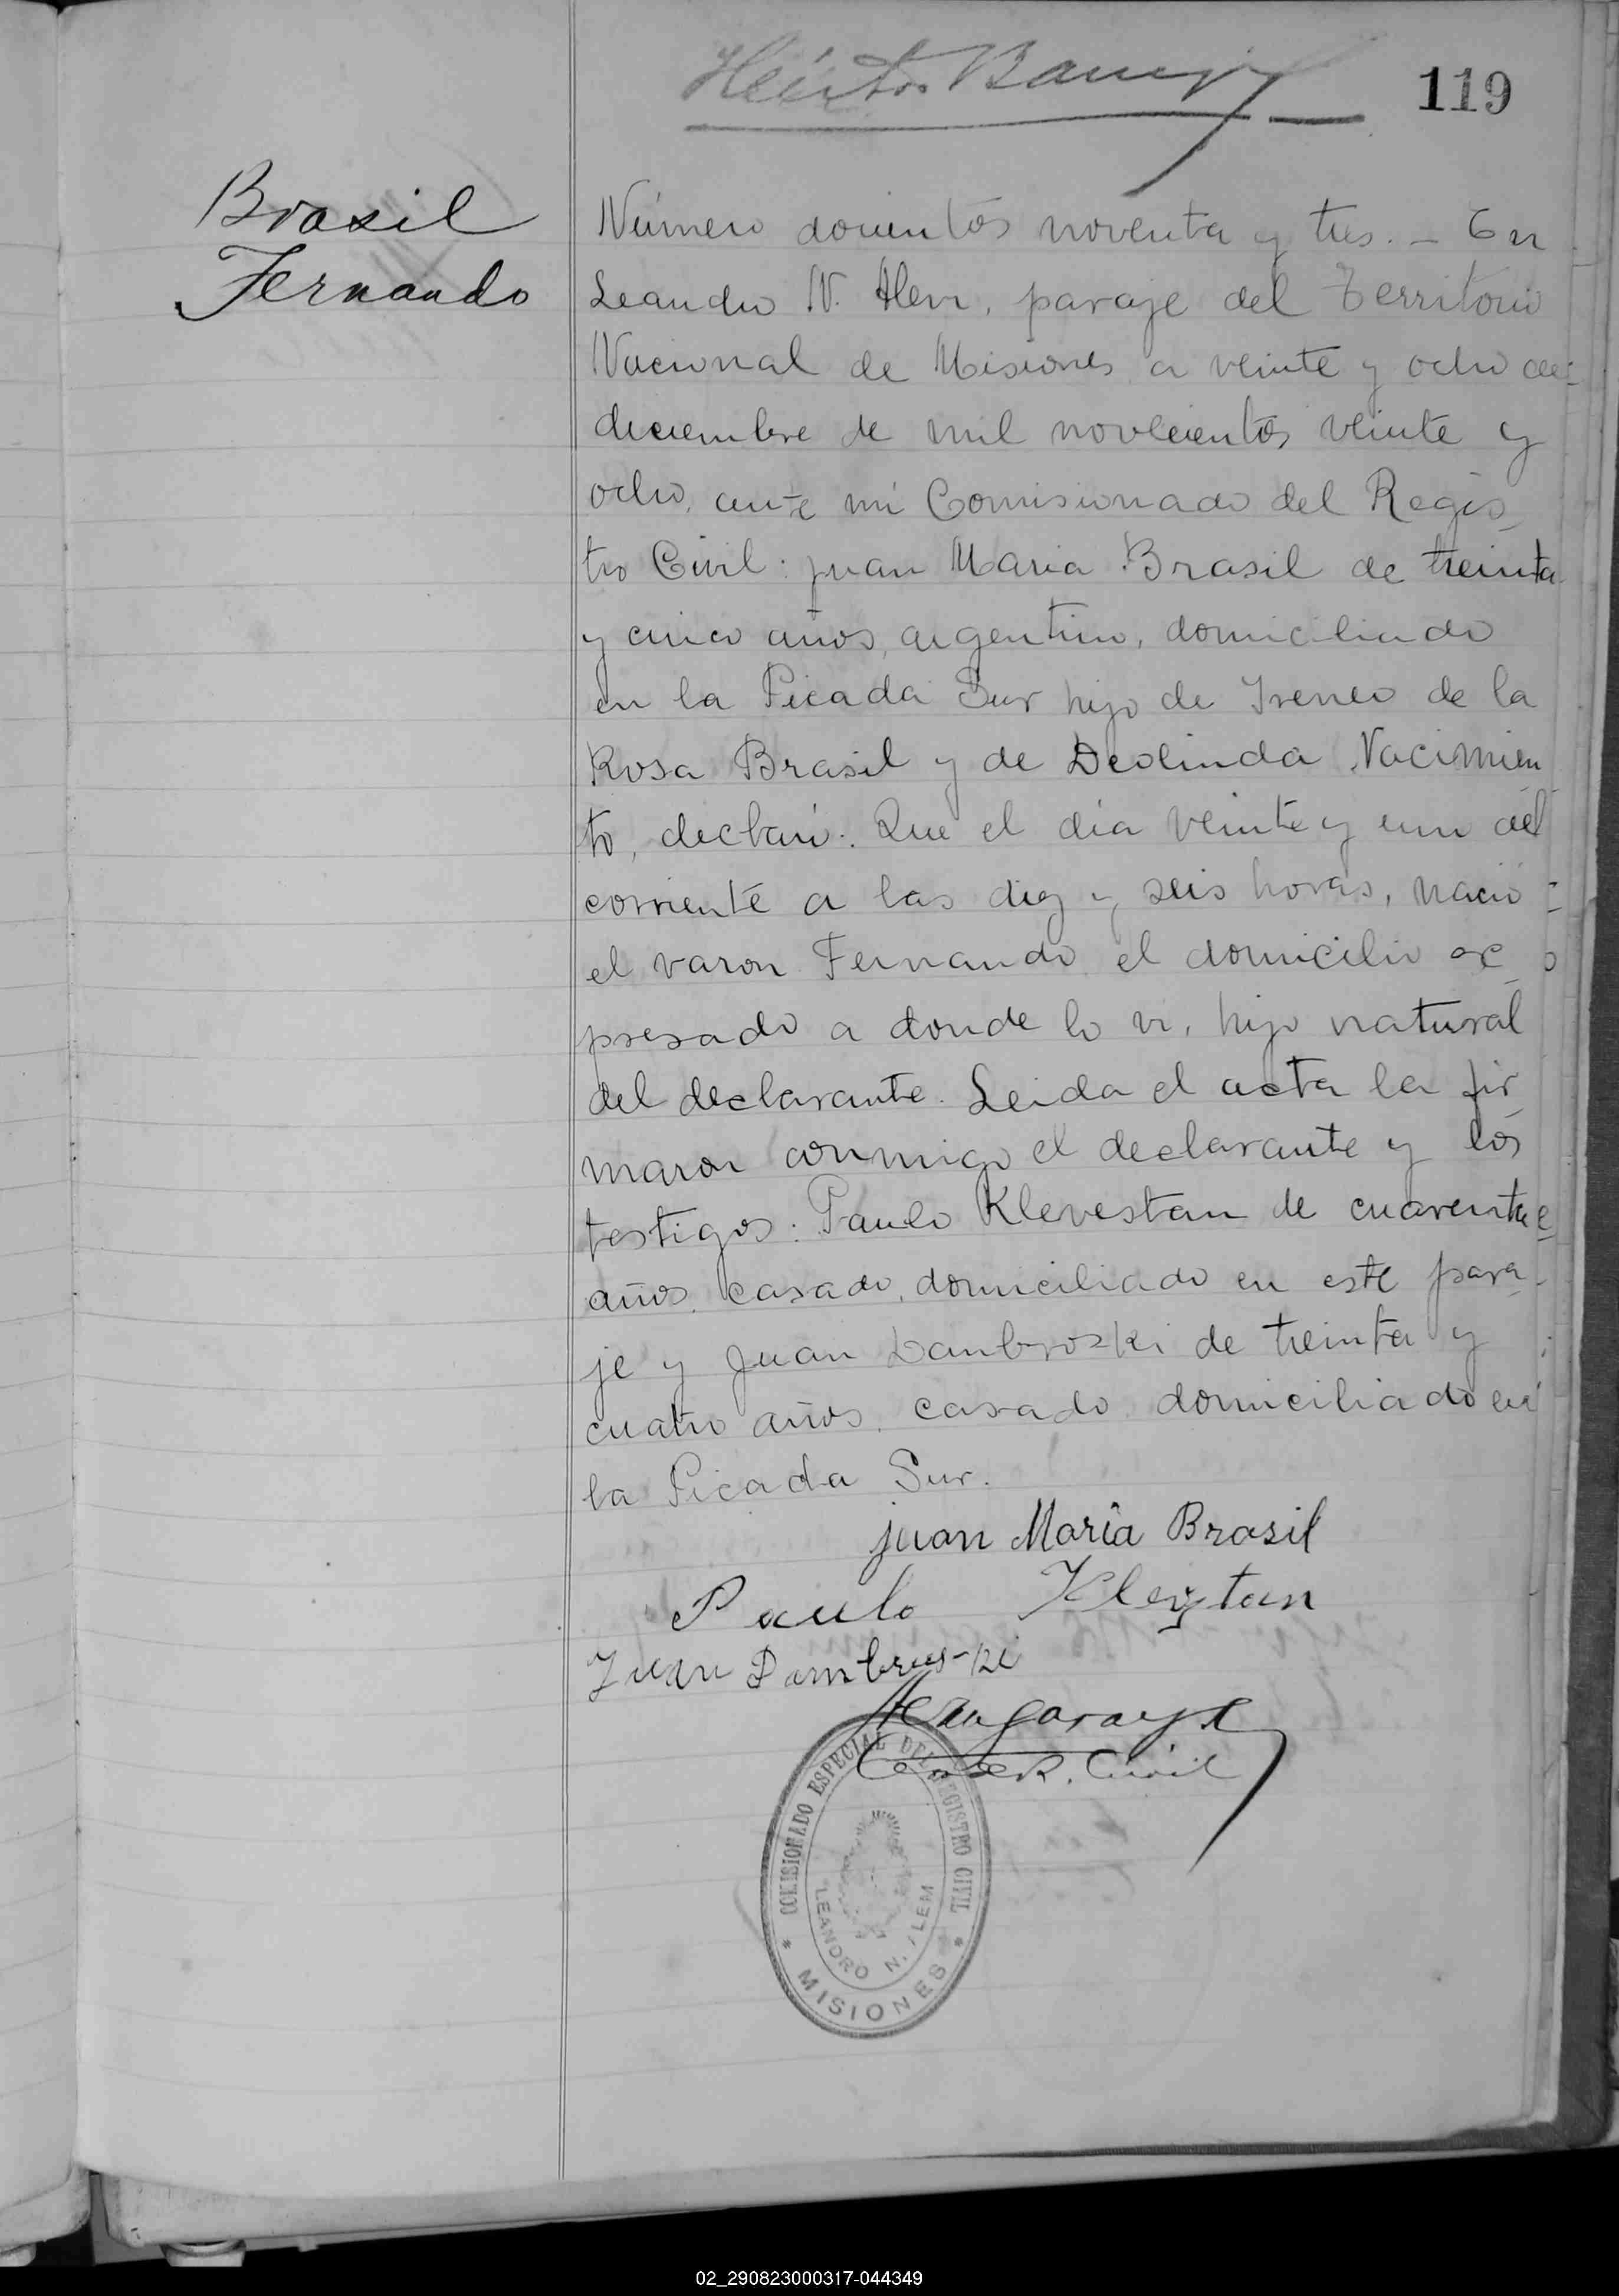 119
Brasil
Fernando
Número docientos noventa y tres. – En
Leandro N. Alem, paraje del Territorio
Nacional de Misiones a veinte y ocho de
diciembre de mil novecientos veinte y
ocho, ante mi Comisionado del Regis
tro Civil: Juan Maria Brasil de treinta
y cinco años, argentino, domiciliado
en la Picada Sur hijo de Ireneo de la
Rosa Brasil y de Deolinda Nacimien
to, declaró: Que el día veinte y uno del
corriente a las diez y seis horas, nació
el varon Fernando el domicilio ex
presado a donde lo vi, hijo natural
del declarante. Leida el acta la fir
maron conmigo el declarante y los
testigos: Paulo Klevestan de cuarenta
años, casado, domiciliado en este para
je y Juan Dambroski de treinta y
cuatro años, casado domiciliado en
la Picada Sur.
juan Maria Brasil
Paulo
Juan
R. Civil
COMISIONADO ESPECIAL DEL REGISTRO CIVIL
LEANDRO N. ALEM
* MISIONES *
02_290823000317-044349